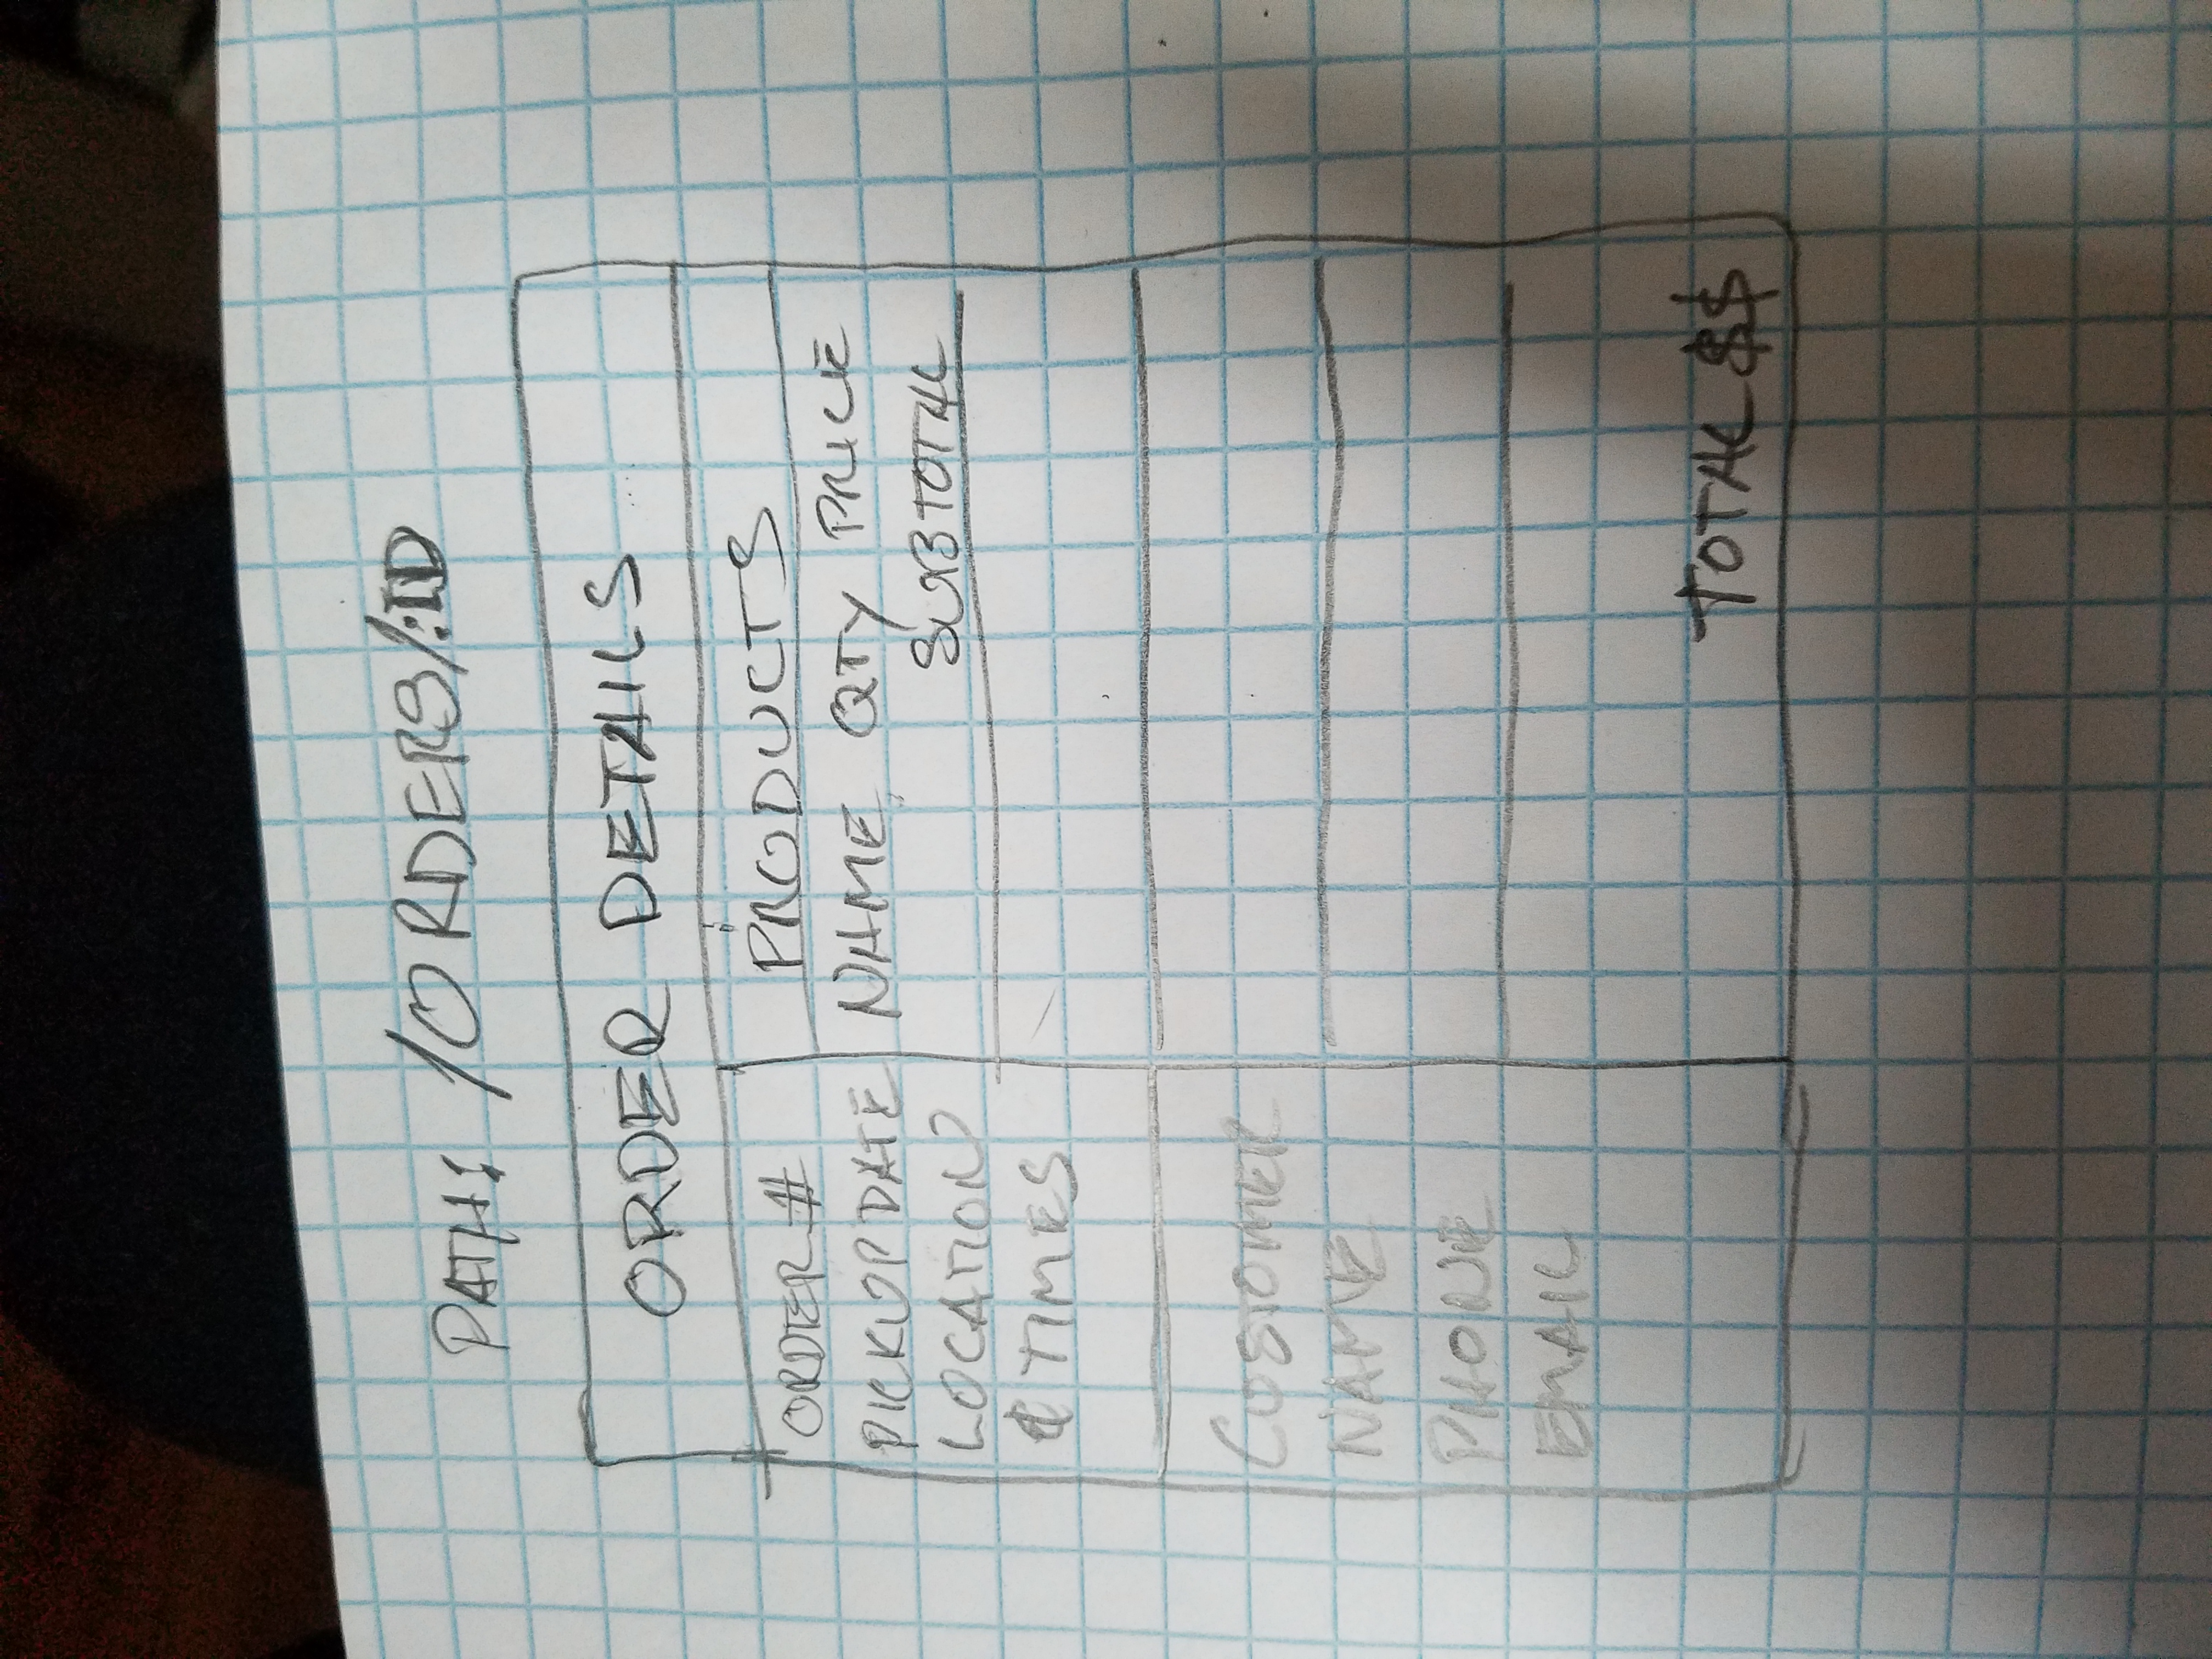 PATH: /ORDERS/:ID
ORDER DETAILS
ORDER #
PICKUP DATE
LOCATION
& TIMES
CUSTOMER
NAME
PHONE
EMAIL
PRODUCTS
NAME QTY PRICE
SUBTOTAL
TOTAL $$